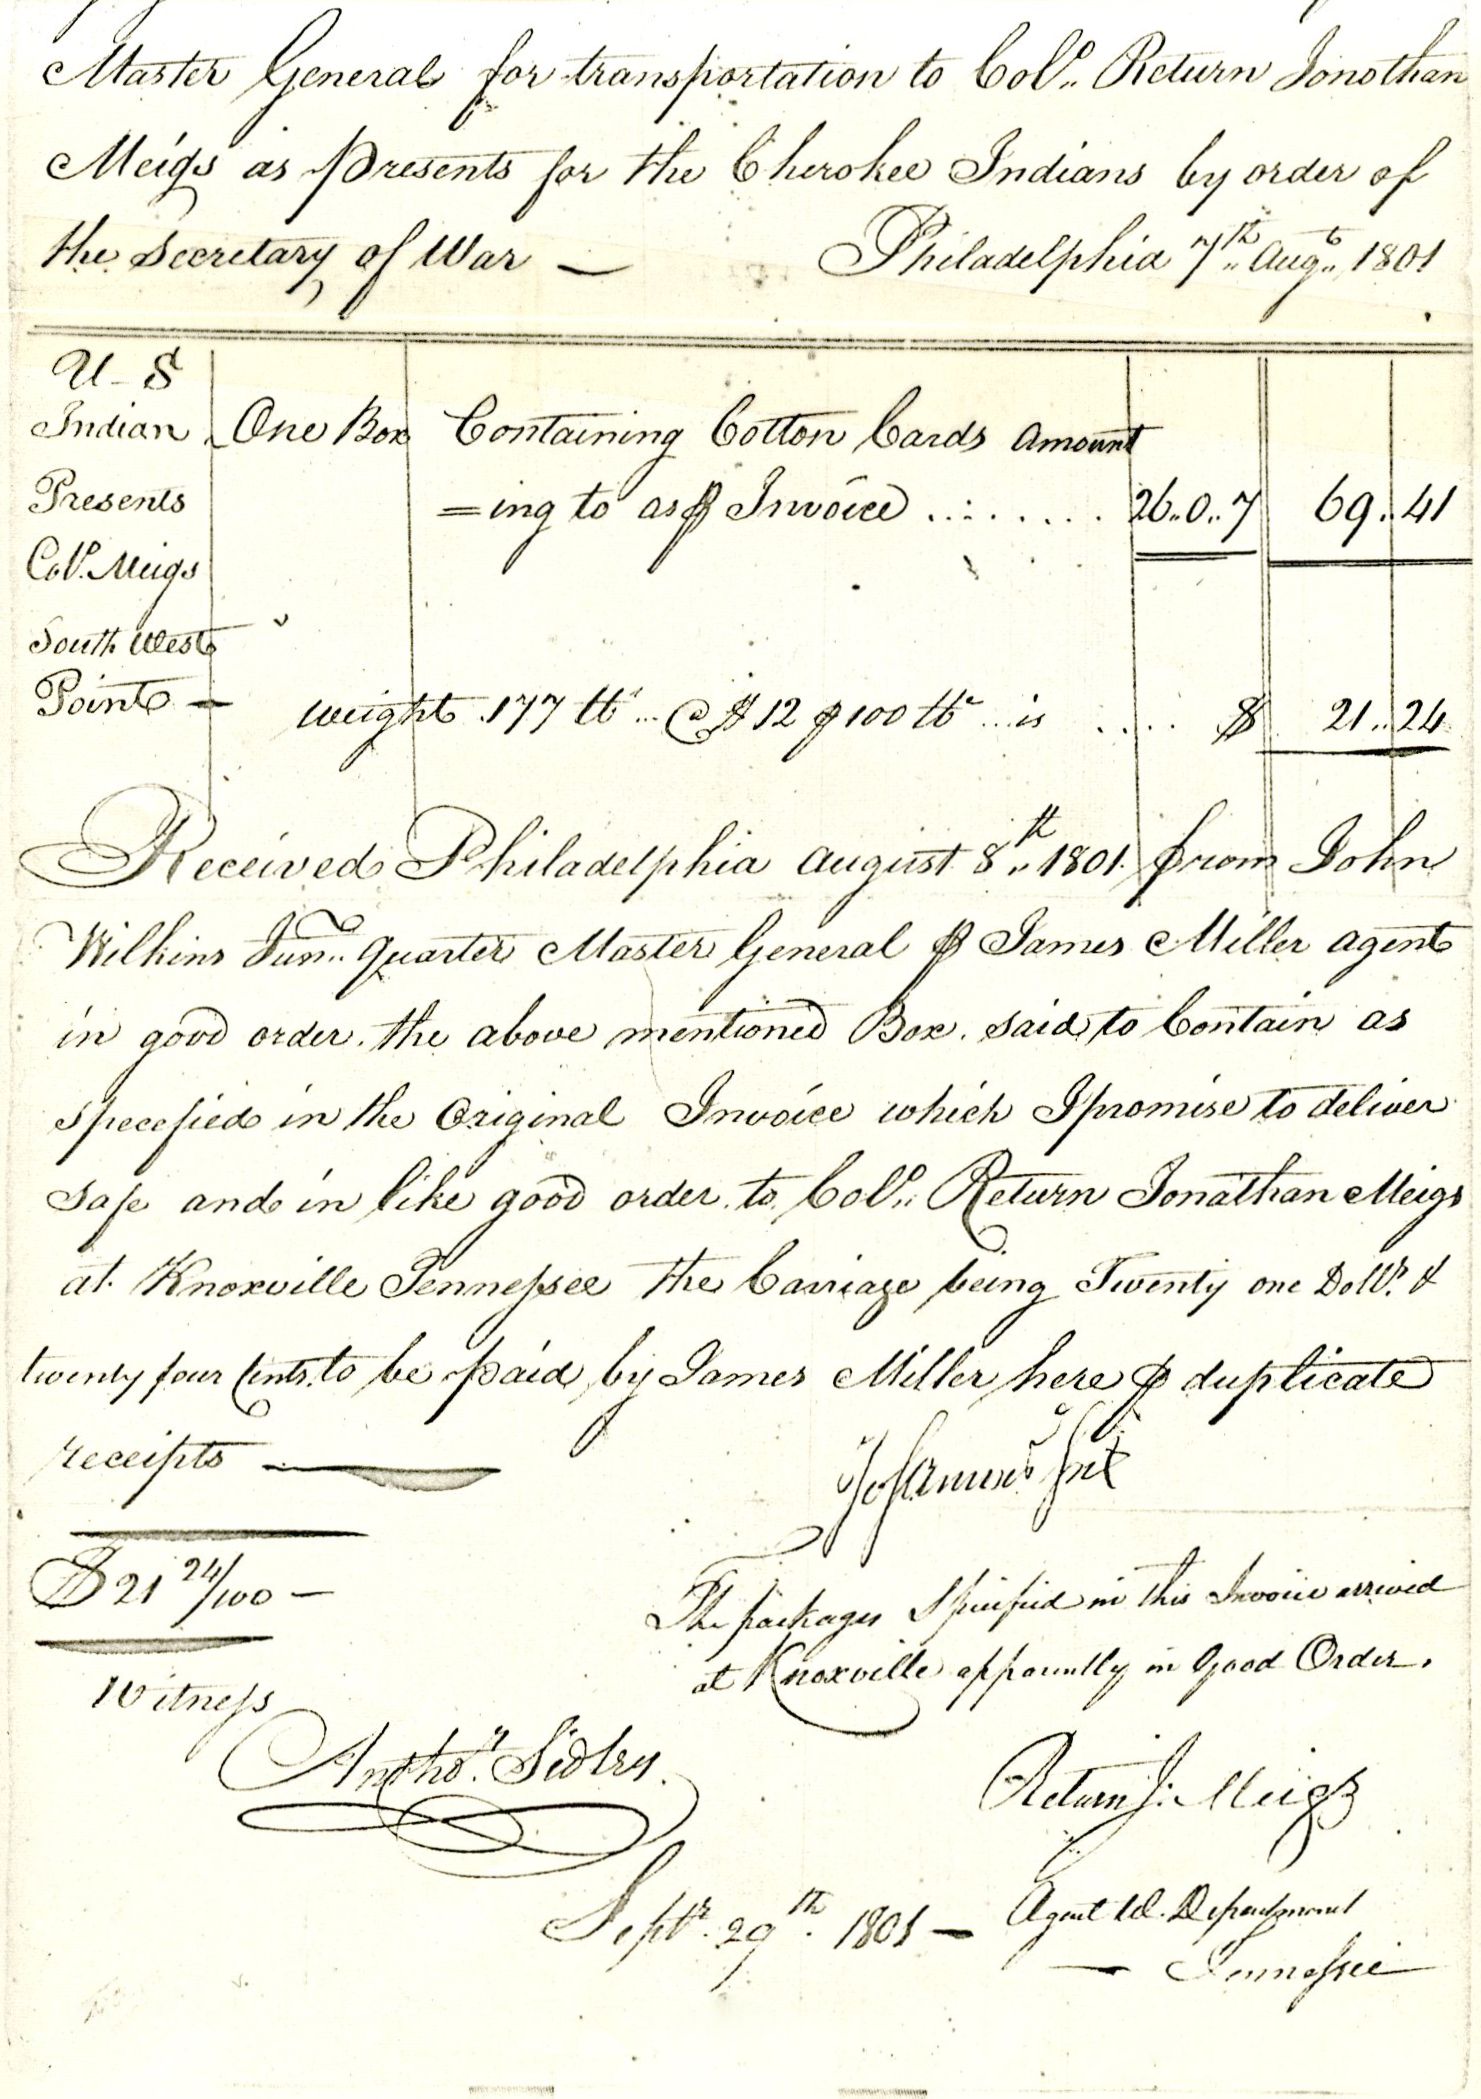 Master General for transportation to Col°.. Return Jonathan
Meigs as presents for the Cherokee Indians by order of
the Secretary of War — Philadelphia 7th.. Augt.. 1801
U-S
Indian One Box Containing Cotton Cards amount
Presents =ing to as ⅌ Invoice ........ 26..0..7 69..41
Col°. Meigs
South West
Point — weight 177 lb... @ $12 ⅌ 100 lb ... is ..... $ 21..24
Received Philadelphia august 8th.. 1801. from John
Wilkins Junr.. Quarter Master General ⅌ James Miller agent
in good order. the above mentioned Box. said to Contain as
specefied in the Original Invoice which I promise to deliver
safe and in like good order. to. Col°.. Return Jonathan Meigs
at. Knoxville Tennessee the Carriage being Twenty one Dollrs. &
twenty four Cents. to be paid by James Miller here ⅌ duplicate
receipts —
$21 24/100 —
The packages Specified in this Invoice arrived
at Knoxville apparently in Good Order.
Witness
Anthoy.
Return J. Meigs
Septr. 29th. 1801 — Agent W. Department
— Tennessee